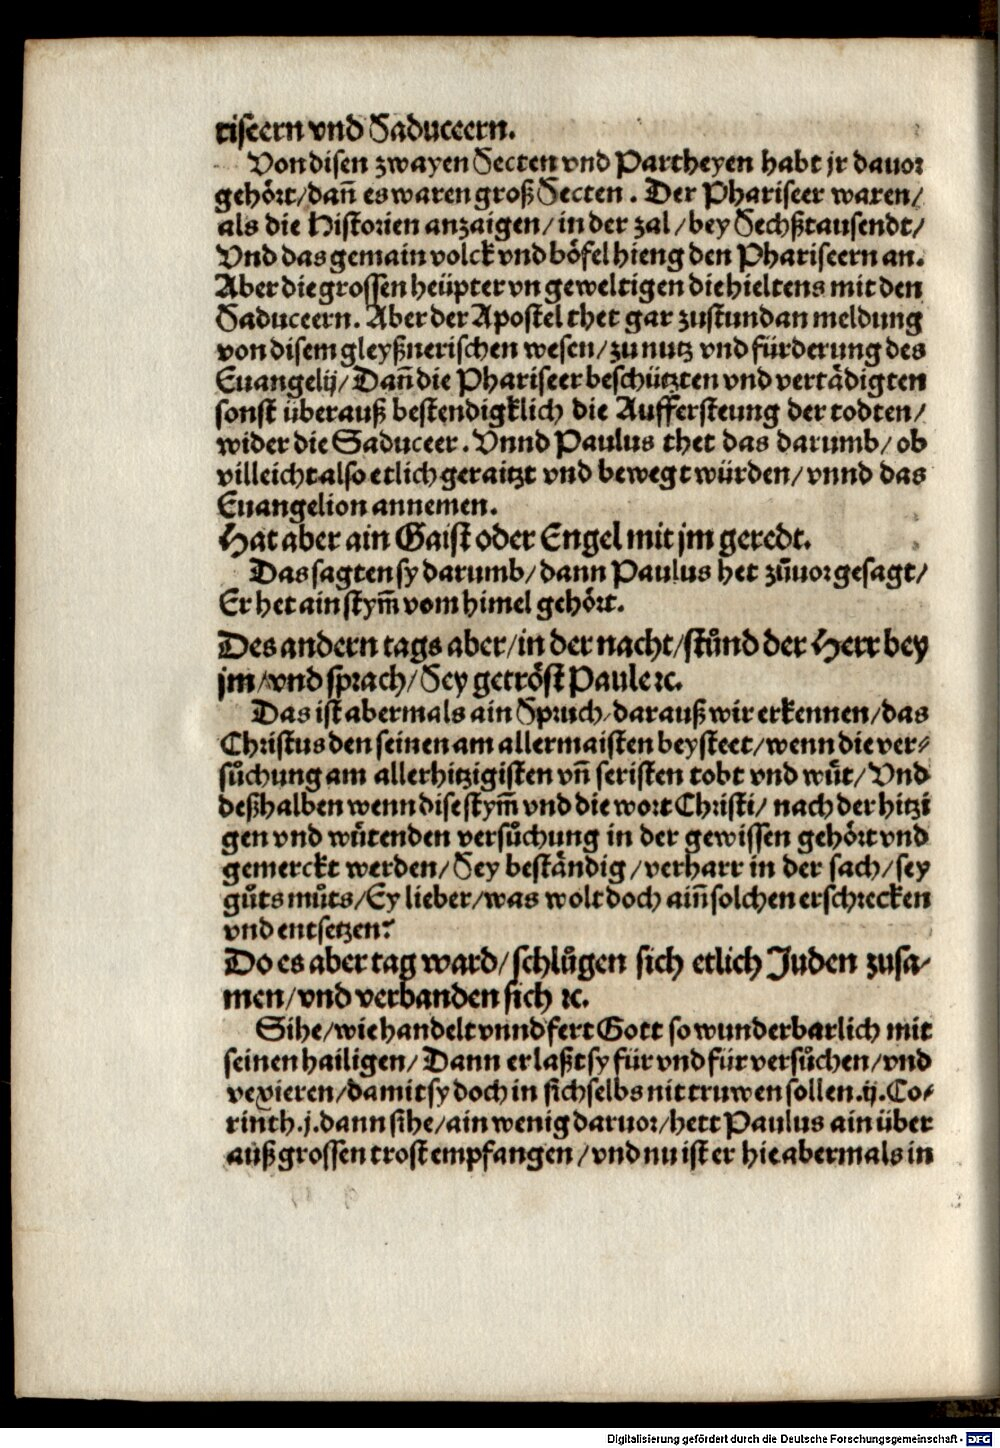 riseern vnd Saduceern.
Von disen zwayen Secten vnd Partheyen habt jr dauor
gehört/dañ es waren groß Secten. Der Phariseer waren/
als die Historien anzaigen/in der zal/bey Sechßtausendt/
Vnd das gemain volck vnd böfel hieng den Phariseern an.
Aber die grossen heüpter vn geweltigen die hieltens mit den
Saduceern. Aber der Apostel thet gar zustundan meldung
von disem gleyßnerischen wesen/zu nutz vnd fürderung des
Euangelij/Dañ die Phariseer beschützten vnd vertädigten
sonst überauß bestendigklich die Auffersteung der todten/
wider die Saduceer. Vnnd Paulus thet das darumb/ob
villeicht also etlich geraitzt vnd bewegt würden/vnnd das
Euangelion annemen.
Hat aber ain Gaist oder Engel mit jm geredt.
Das sagten sy darumb/dann Paulus het zůuor gesagt/
Er het ain stym̃ vom himel gehört.
Des andern tags aber/in der nacht/stůnd der Herr bey
jm/vnd sprach/Sey getröst Paule ꝛc.
Das ist abermals ain Spruch/darauß wir erkennen/das
Christus den seinen am allermaisten beysteet/wenn die ver⸗
sůchung am allerhitzigisten vñ seristen tobt vnd wüt/Vnd
deßhalben wenn dise stym̃ vnd die wort Christi/nach der hitzi
gen vnd wütenden versůchung in der gewissen gehört vnd
gemerckt werden/Sey beständig/verharr in der sach/sey
gůts můts/Ey lieber/was wolt doch aiñ solchen erschrecken
vnd entsetzen?
Do es aber tag ward/schlůgen sich etlich Juden zusa⸗
men/vnd verbanden sich ꝛc.
Sihe/wie handelt vnnd fert Gott so wunderbarlich mit
seinen hailigen/Dann er laßt sy für vnd für versůchen/vnd
vexieren/damit sy doch in sich selbs nit truwen sollen.ij.Co⸗
rinth.j.dann sihe/ain wenig daruor/hett Paulus ain über
auß grossen trost empfangen/vnd nu ist er hie abermals in
Digitalisierung gefördert durch die Deutsche Forschungsgemeinschaft - DFG